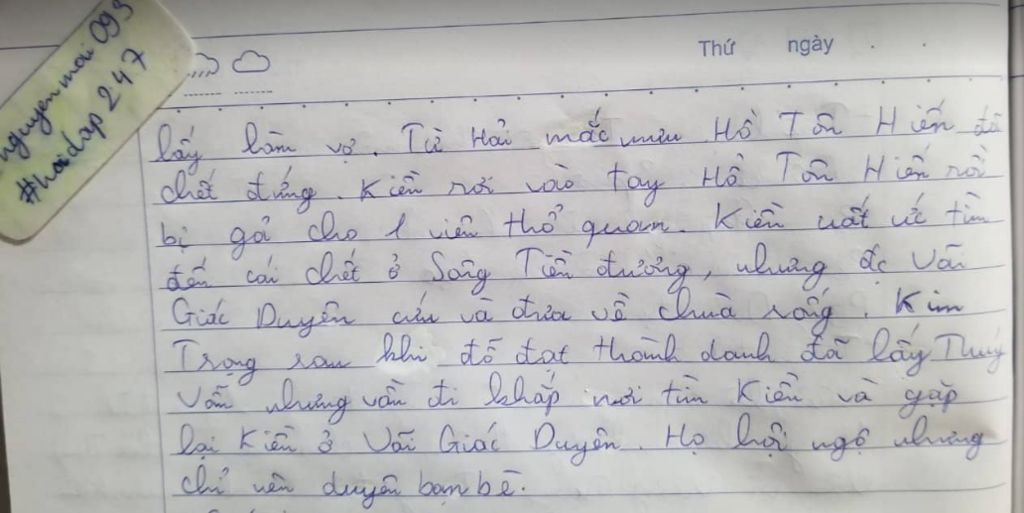 nguyenmai 093
#hoidap 247
Thứ ngày
lấy làm vợ. Từ Hải mắc mưu Hồ Tôn Hiến đã
chết đứng. Kiều rơi vào tay Hồ Tôn Hiến rồi
bị gả cho 1 viên thổ quan. Kiều uất ức tìm
đến cái chết ở Sông Tiền đường, nhưng đc Vãi
Giác Duyên cứu và đưa về chùa sống. Kim
Trọng sau khi đỗ đạt thành danh đã lấy Thuý
Vân nhưng vẫn đi khắp nơi tìm Kiều và gặp
lại Kiều ở Vãi Giác Duyên. Họ hội ngộ nhưng
chỉ nên duyên bạn bè.